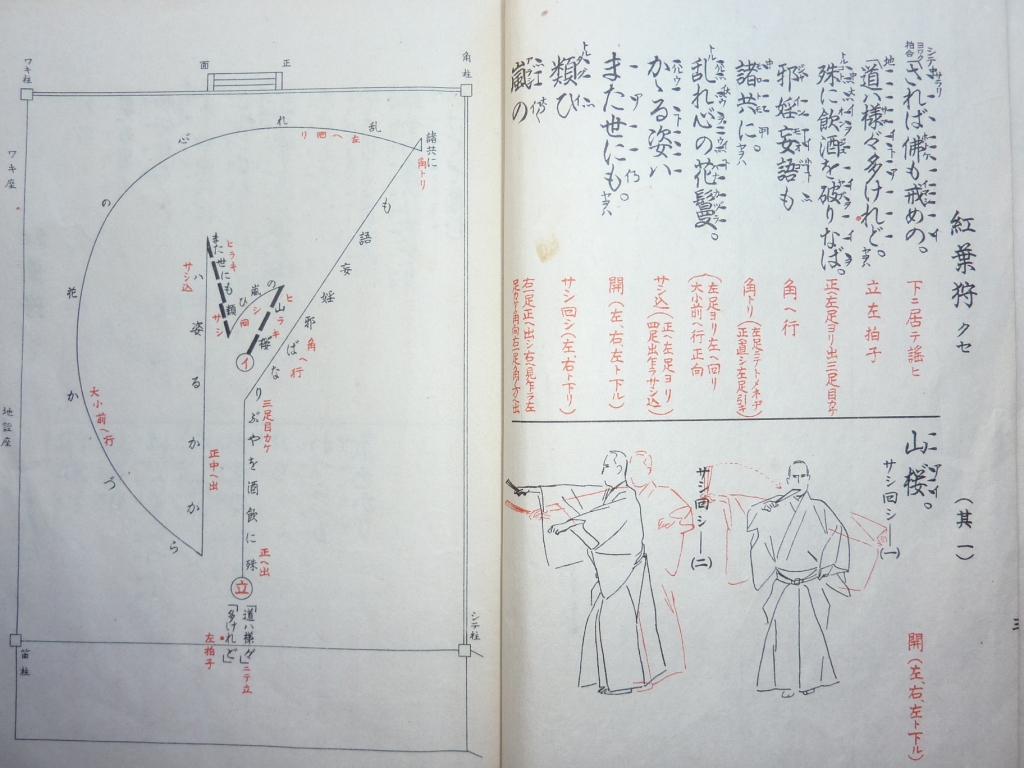 紅葉狩 クセ
(其一)
されば佛も戒めの。
下ニ居テ謡ヒ
道ハ様々多けれど。
立 左拍子
殊に飲酒を破りなば。
正ヘ左足ヨリ出三足目カケ
邪婬妄語も
角ヘ行
諸共に。
角トリ
乱れ心の花鬘。
左足ヨリ左ヘ回リ
大小前ヘ行 正向
かゝる姿ハ
サシ込
正ヘ左足ヨリ
四足出乍ラサシ込
また世にも。
開(左、右、左ト下ル)
類ひ
サシ回シ(左、右ト下ル)
嵐の
右足正ヘ出シ右ヘ見乍ラ左
山桜。
開(左、右、左ト下ル)
サシ回シ─(一)
サシ回シ─(二)
三
正
面
角柱
ワキ柱
ワキ座
地謡座
笛柱
シテ柱
諸共に
角トリ
乱れ心の花かづら
左ヘ回リ
大小前ヘ行
正中ヘ出
かかる姿ハ
サシ込
また世にも
ヒラキ
類ひ
サシ回シ
嵐の
山桜
ヒラキ
イ
殊に酒飲をやぶりなば
正ヘ出
三足目カケ
邪婬妄語も
角ヘ行
立
「道ハ様々」ニテ立
「多けれど」
左拍子